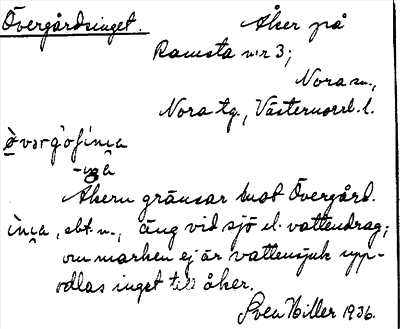 Övergårdsinget. Åker på
Ramsta nr 3;
Nora sn.,
Nora tg., Västernorrl. l.
Åkern gränsar mot Övergård.
ìŋa, obt. n., äng vid sjö el. vattendrag;
om marken ej är vattensjuk upp-
odlas inget till åker.
Sven Hiller 1936.